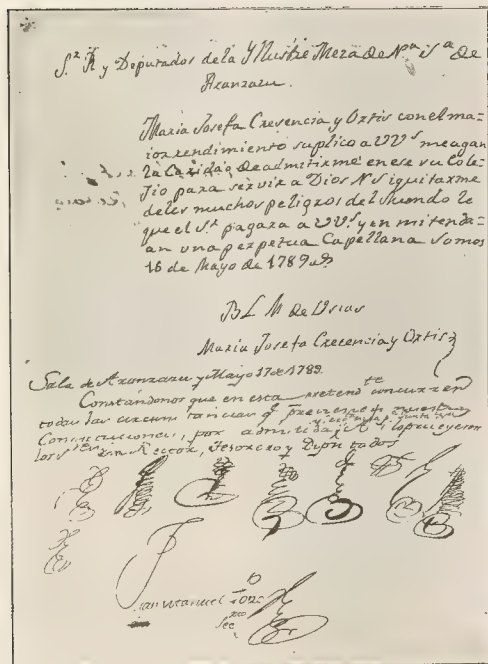 S.r R.r y Deputados de la Yllustre Meza de N.a S.a de
Aranzazu.
Maria Josefa Crecencia y Ortis con el ma=
ior rendimiento suplico a VVS.s me agan
la Caridad de admitirme en ese su Cole=
jio para servir a Dios N S i quitarme
delos muchos peligros del Mundo lo
que el S.r pagara a VVS.s y en mi tendra=
an una perpetua Capellana Somos
16 de Mayo de 1789 as
B L M de Usias
Maria Josefa Crecencia y Ortis
Sala de Aranzazu y Mayo 17 de 1789.
Constandonos que en esta pretend.te concurren
todas las circumstancias q.e previenen nuestras
Constituciones, por admitida, y asi lo proveyeron
los S.res Rector, Tesorero y Diputados
Juan Manuel
Sec